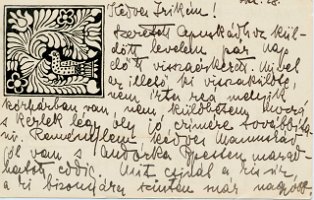 Okt. 28.
Kedves Irikém!
Szeretett Apukádhoz kül-
dött levelem pár nap
előtt visszaérkezett. Mivel
az illető ki visszaküldte,
nem írta reá melyik
kórházban van nem küldhetem
s kérlek légy oly jó címére továbbíta-
ni. Remélem kedves Mamuskád
jól van s Andorka Pesten marad-
hatott eddig. Mit csinál a kicsi
a ki bizonyára szintén már nagyobb